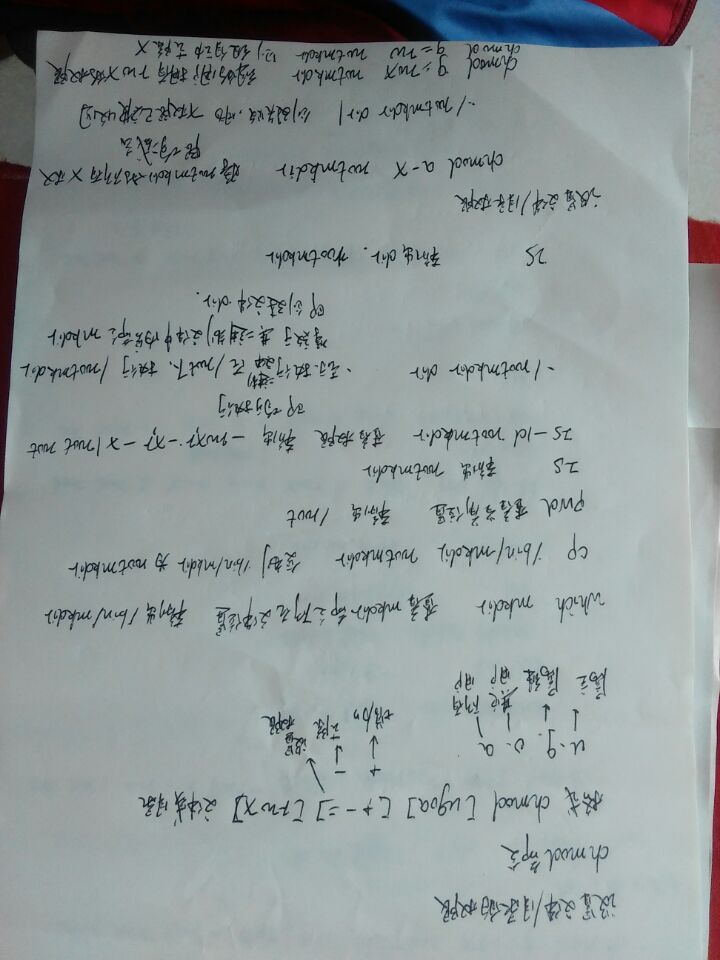 设置文件/目录的权限
chmod 命令
格式 chmod [ugoa] [+-=] [rwx] 文件或目录
u.g.o.a
+ -
增加 去除 设置权限
属主 属组 其它用户 所有用户
which mkdir 查看mkdir命令所在文件位置 输出 /bin/mkdir
cp /bin/mkdir rootmkdir 复制 /bin/mkdir 为 rootmkdir
pwd 查看当前位置 输出 /root
ls 输出 rootmkdir
ls -ld rootmkdir 查看权限 输出 -rwxr-xr-x 1 root root
即均可执行
./rootmkdir dir .表示执行二进制文件 在/root下、执行 /rootmkdir
等效于 其二进制文件中内容命令 mkdir
即创建文件 dir.
ls 输出 dir. rootmkdir
设置文件/目录权限
chmod a-x rootmkdir 将rootmkdir的所有x权
限均减去
./rootmkdir dir1 创建失败,因为 x权限已被收回
chmod g=rwx rootmkdir 组的用户拥有rwx的权限
chmod g=rw rootmkdir 则组自动去除x